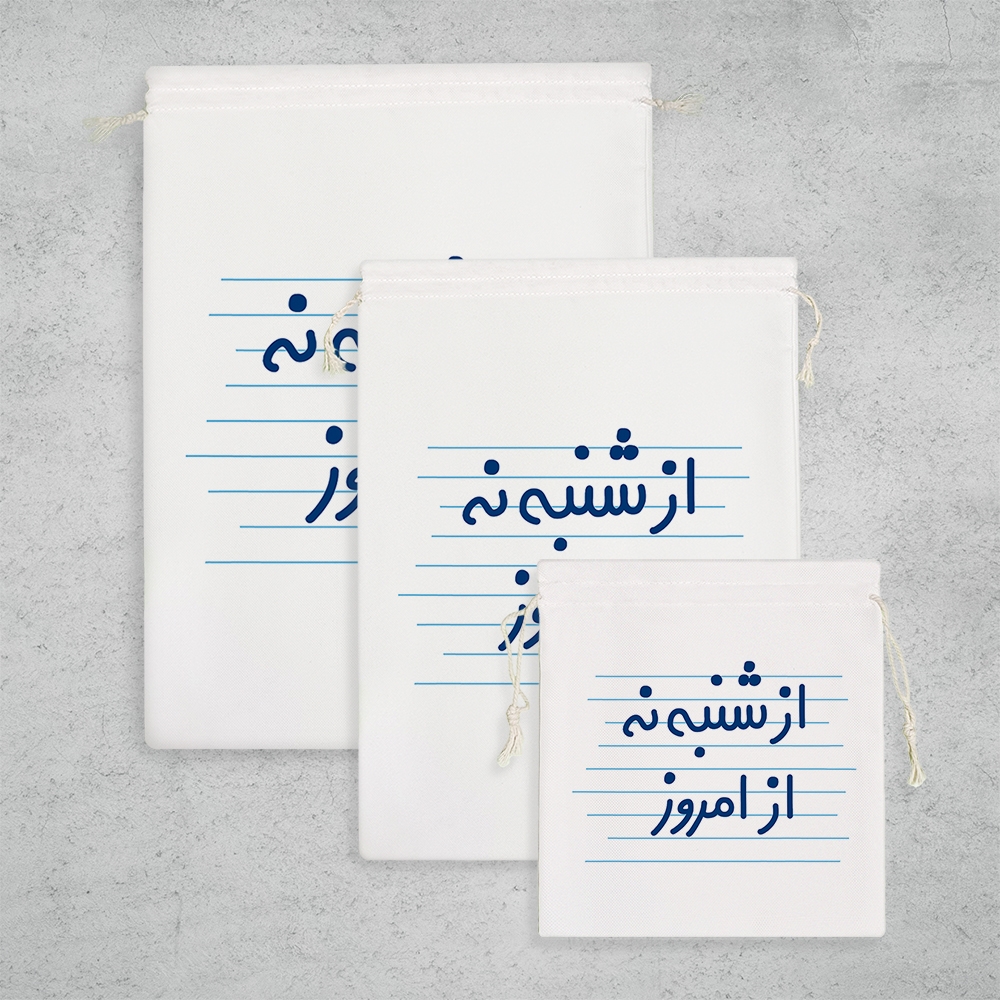 نه
از شنبه نه
از شنبه نه
از امروز